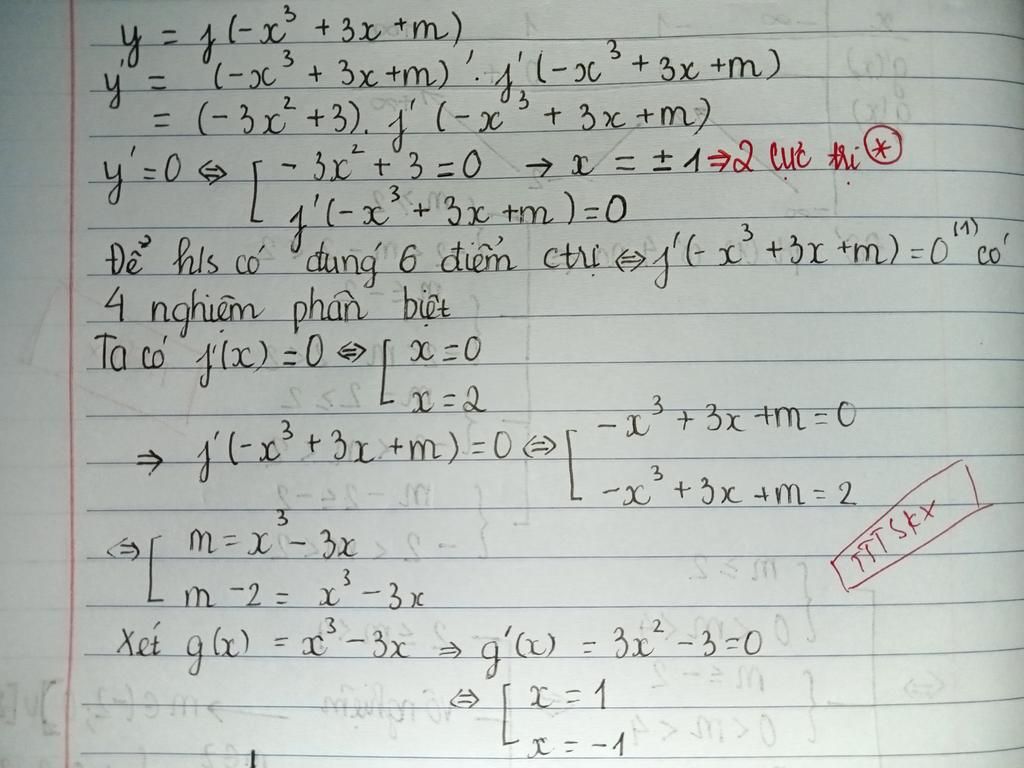 y = f(-x³ + 3x + m)
y' = (-x³ + 3x + m)' . f'(-x³ + 3x + m)
= (-3x² + 3). f'(-x³ + 3x + m)
y' = 0 ⇔ [ -3x² + 3 = 0 → x = ±1 ⇒ 2 cực trị (*)
f'(-x³ + 3x + m) = 0
Để h/s có đúng 6 điểm ctrị ⇔ f'(-x³ + 3x + m) = 0 (1) có
4 nghiệm phân biệt
Ta có f'(x) = 0 ⇔ [ x = 0
x = 2
⇒ f'(-x³ + 3x + m) = 0 ⇔ [ -x³ + 3x + m = 0
-x³ + 3x + m = 2
⇔ [ m = x³ - 3x
m - 2 = x³ - 3x
TTTSKX
Xét g(x) = x³ - 3x ⇒ g'(x) = 3x² - 3 = 0
⇔ [ x = 1
x = -1